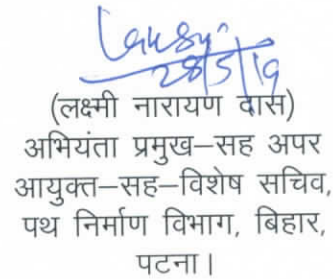 28/5/19
(लक्ष्मी नारायण दास)
अभियंता प्रमुख–सह अपर
आयुक्त–सह–विशेष सचिव,
पथ निर्माण विभाग, बिहार,
पटना।